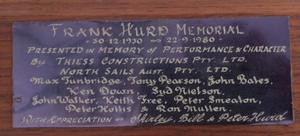 FRANK HURD MEMORIAL
30·12·1930 — 22·9·1980
PRESENTED IN MEMORY OF PERFORMANCE & CHARACTER
BY THIESS CONSTRUCTIONS PTY. LTD.
NORTH SAILS AUST. PTY. LTD.
Max Tunbridge, Tony Pearson, John Bates,
Ken Down, Syd Nielson,
John Walker, Keith Free, Peter Smeaton,
Peter Hollis & Ron Mullen.
WITH APPRECIATION — Shirley, Bill & Peter Hurd